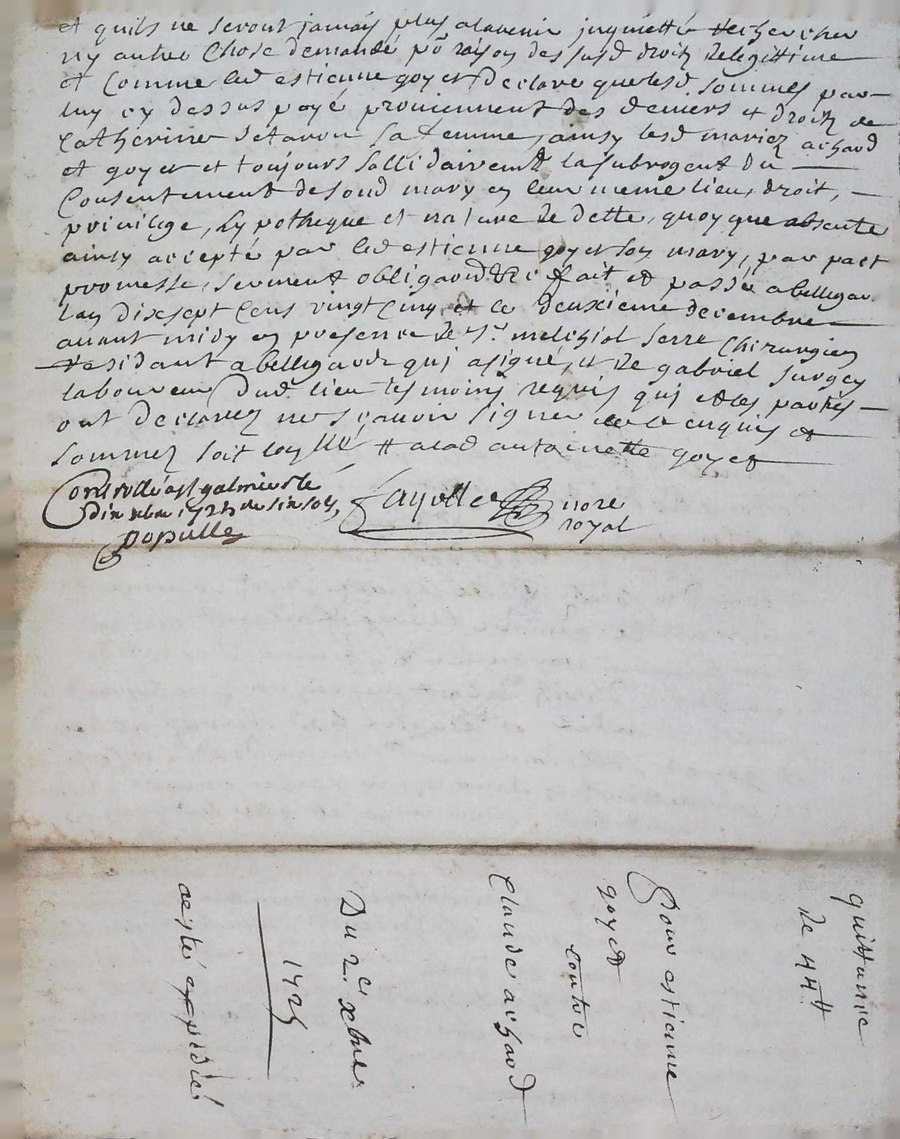 et quils ne seront jamais plus alavenir inquietté rechercher
ny autre Chose demandé po raison des susd droitz relegittime
et Comme led estienne goyet declare que lesd sommes par
luy cy dessus payé proviennent des deniers et droitz de
Catherine sa femme, ainsy lesd mariez achard
et goyet et toujours sollidairement la subrogent du
Consentement de sond mary en leur meme lieu, droit,
privilege, hypotheque et nature de dette, quoy que absente
ainsy accepté par led estienne goyet son mary, par pact
promesse, serment obligaon &c fait et passé a bellegar
lan dixsept cens vingt cinq et le deuxieme decembre
avant midy en presence de sr melchiol serre Chirurgien
residant a bellegarde qui a signé, et de gabriel surgey
laboureur dud lieu tesmoins requis qui et les parties
ont declarez ne sçavoir signer de ce enquis et
sommez soit
Controllé a st galmier le
dix xbre 1725 six sols
papulle
fayolle nore
royal
quittance
de 44 tt
Pour estienne
goyet
contre
Claude achard
Du 2e xbre
1725
a esté expedié